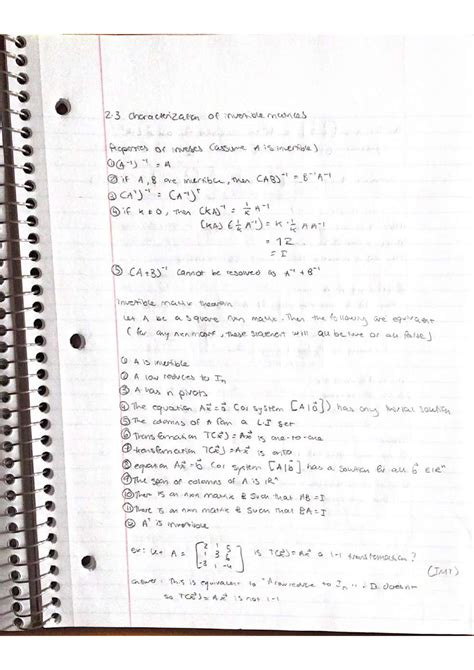 2.3 Characterization of invertible matrices
Properties of inverses (assume A is invertible)
① (A⁻¹)⁻¹ = A
② if A, B are invertible, then (AB)⁻¹ = B⁻¹A⁻¹
③ (Aᵀ)⁻¹ = (A⁻¹)ᵀ
④ if k ≠ 0, then (kA)⁻¹ = 1/k A⁻¹
(kA)(1/k A⁻¹) = k · 1/k A A⁻¹
= 1I
= I
⑤ (A+B)⁻¹ cannot be resolved as A⁻¹ + B⁻¹
Invertible matrix theorem
Let A be a square nxn matrix. Then the following are equivalent
(for any nxn matrix, these statement will all be true or all false)
① A is invertible
② A row reduces to Iₙ
③ A has n pivots
④ The equation Ax⃗ = 0⃗ (or system [A|0⃗]) has only trivial solution
⑤ The columns of A form a L.I set
⑥ Transformation T(x⃗) = Ax⃗ is one-to-one
⑦ transformation T(x⃗) = Ax⃗ is onto
⑧ equation Ax⃗ = b⃗ (or system [A|b] has a solution for all b⃗ ∈ ℝⁿ
⑨ The span of columns of A is ℝⁿ
⑩ There is an nxn matrix B such that AB = I
⑪ There is an nxn matrix B such that BA = I
⑫ Aᵀ is invertible
ex: Let A = [2 1 5; 1 3; -3 1 -4] is T(x⃗) = Ax⃗ a 1-1 transformation?
(IMT)
answer: This is equivalent to "A row reduce to Iₙ". It doesn't
so T(x⃗) = Ax⃗ is not 1-1